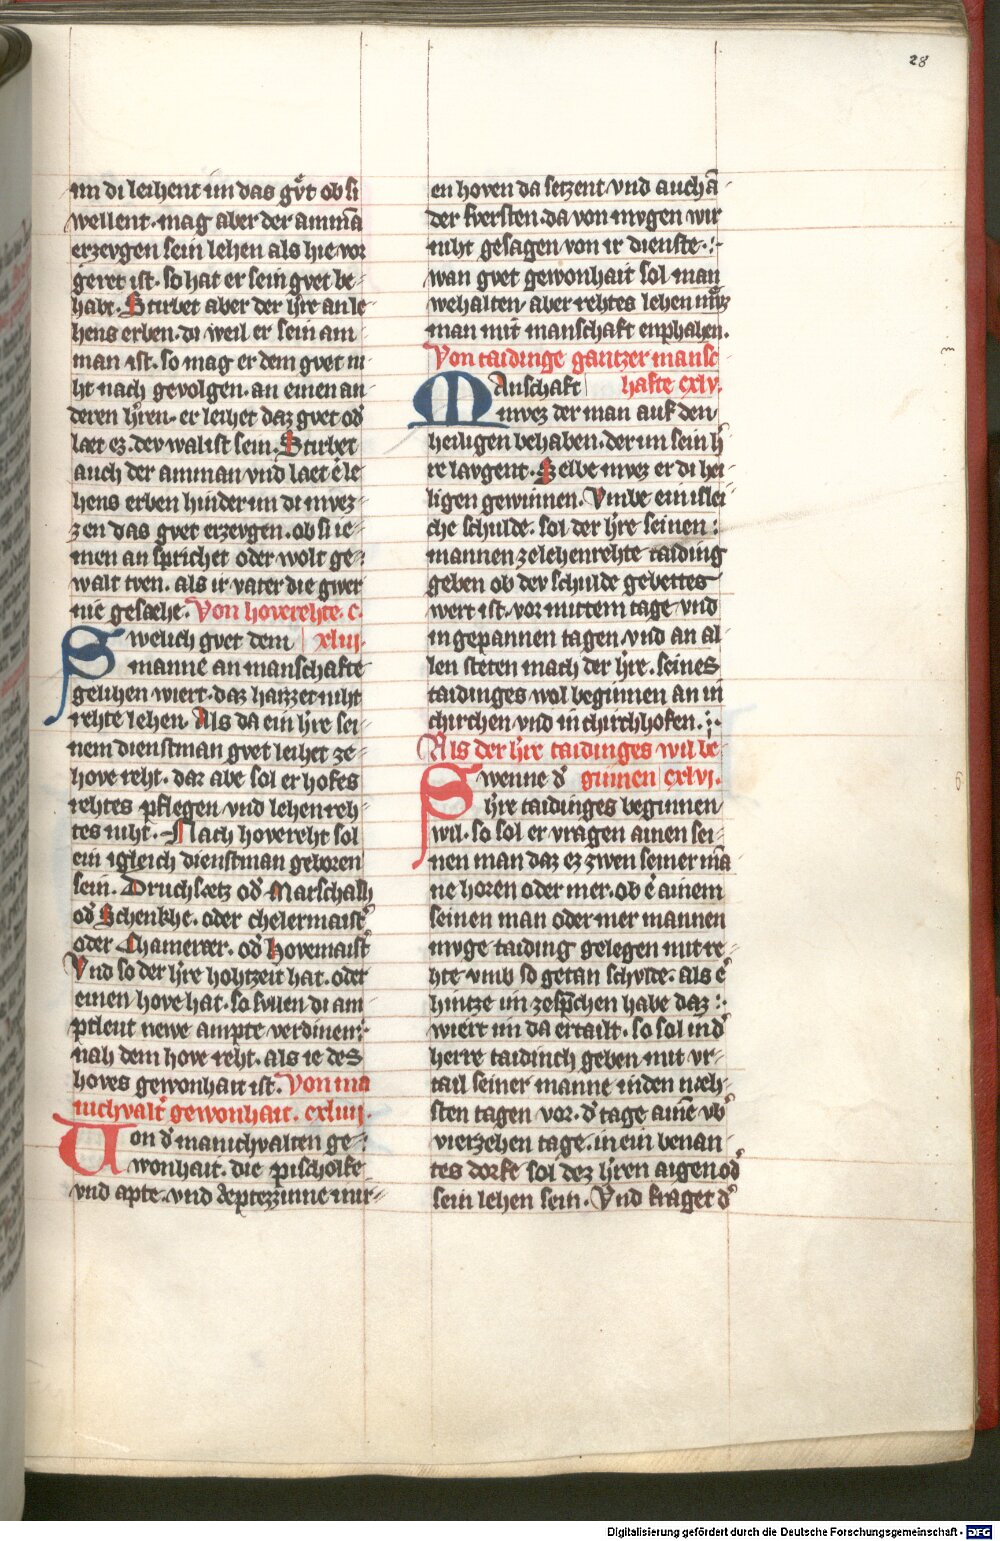 28
im di leihent im das gvͦt ob si
wellent. mag aber der ammā
erzevgen sein lehen als hie vor
geret ist. so hat er sein gvet be
habt. Stirbet aber der h̾re an le
hens erben. di weil er sein am
man ist. so mag er dem gvet ni
ht nach gevolgen. an einen an
deren h̾ren. er leihet daz gvet od̾
laet ez. dev wal ist sein. Stirbet
auch der amman vnd laet e᷑ le
hens erben hinder im di mvez
zen das gvet erzevgen. ob si ie
men an sprichet oder wolt ge
walt tven. als ir vater die gwer
nie gesaehe. Von hoverehte. c.
xliii.
Swelich gvet dem
manne an manschafte
gelihen wiert. daz haizzet niht
rehte lehen. Als da ein h̾re sei
nem dienstman gvet leihet ze
hove reht. daz abe sol er hofes
rehtes pflegen vnd lehenreh
tes niht. Nach hovereht sol
ein igleich dienstman geboren
sein. Druchsætz od̾ Marschalh
od̾ Schenkhe. oder chelermaist̾
oder Chamerær. od̾ hovemaist̾
Vnd so der h̾re hohtzeit hat. oder
einen hove hat. so svlen di am
ptlent newe ampte verdinen
nah dem hove reht. als ie des
hoves gewonhait ist. Von ma
nichvalt̾ gewonhait. cxliiii.
Von d̾ manichvalten ge
wonhait. die pischolfe
vnd apte. vnd æptezzinne mir
en hoven da setzent vnd auch ā
der fversten. da von mvgen wir
niht gesagen von ir dienste.
wan gvet gewonhait sol man
wehalten. aber rehtes lehen mvͦz
man mit manschaft enphahen.
Von taidinge gantzer mansc
hafte cxlv.
Manschaft
mvez der man auf den
heiligen behaben. der im sein h̾
re lavgent. Selbe mvez er di hei
ligen gewinnen. Vmbe ein islei
che schulde. sol der h̾re seinen
mannen ze lehenrehte taiding
geben ob dev schulde gebettes
wert ist. vor mittem tage vnd
in gepannen tagen vnd an al
len steten mach der h̾re. seines
taidinges wol beginnen an in
chirchen vnd in chirchhofen.
Als der h̾re taidinges wil be
ginnen cxlvi.
Swenne d̾
h̾re taidinges beginnen
wil. so sol er vragen ainen sei
nen man daz ez zwen seiner mā
ne horen oder mer. ob e᷑ ainem
seinen man oder mer mannen
mvge taiding gelegen mit re
hte vmb so getan schvlde. als e᷑
hintze im ze sp̄chen habe daz
wiert im da ertailt. so sol im d̾
herre taidinch geben mit vr
tail seiner manne in den næh
sten tagen vor. d̾ tage aine vb̾
vierzehen tage. in ein benan
tes dorfe sol dez h̾ren aigen od̾
sein lehen sein. Vnd fraget d̾
Digitalisierung gefördert durch die Deutsche Forschungsgemeinschaft - DFG